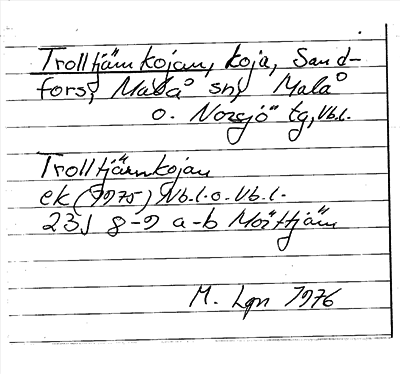 Trolltjärnkojan, koja, Sand-
fors, Malå sn, Malå
o. Norsjö tg, Vb.l.
Trolltjärnkojan
ek (1975) Nb.l.o.Vb.l.
23J 8-9 a-b Mörttjärn
M. Lgn 1976